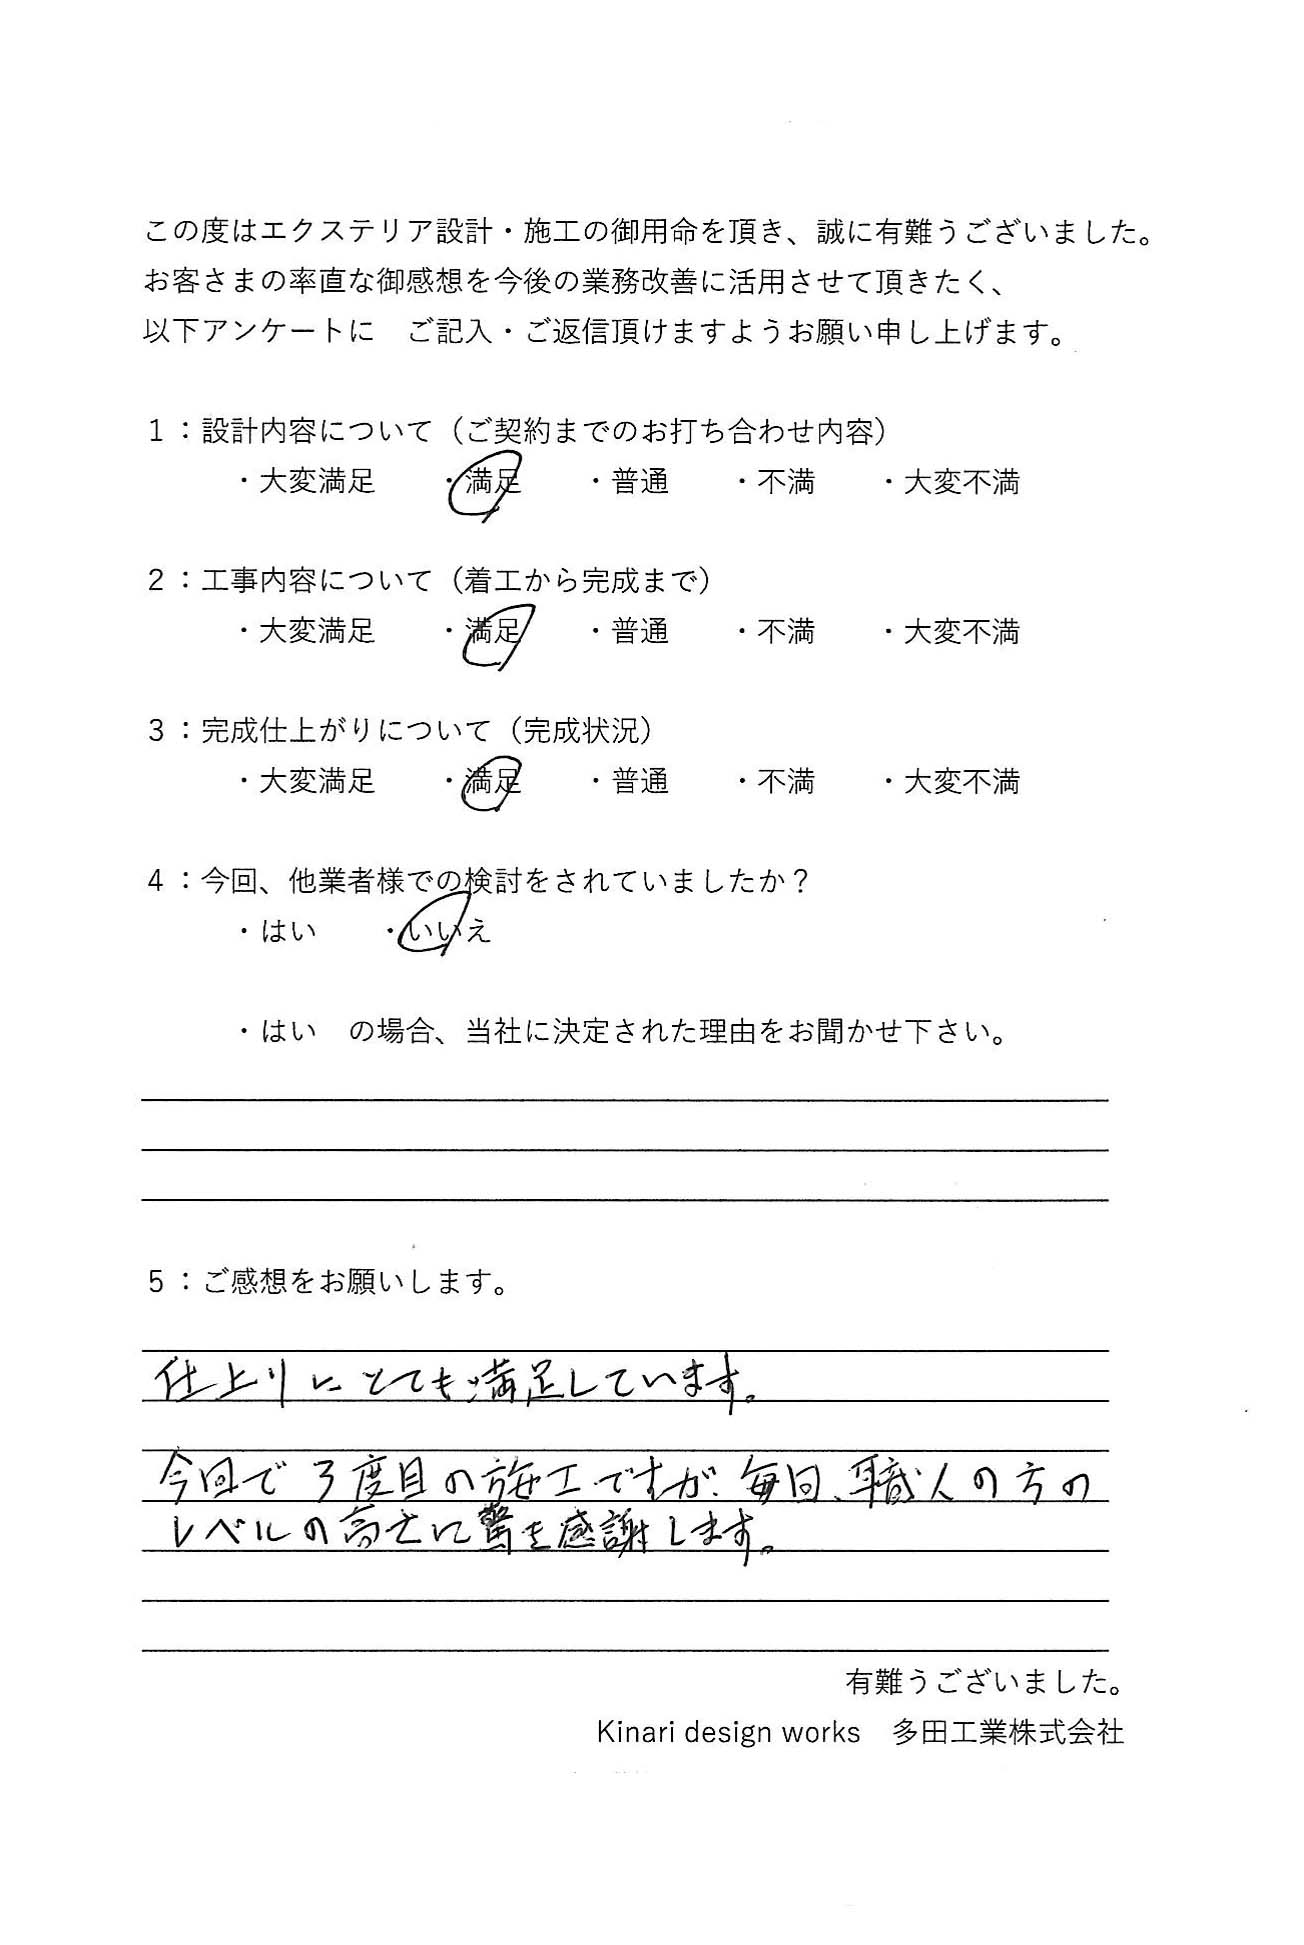 この度はエクステリア設計・施工の御用命を頂き、誠に有難うございました。
お客さまの率直な御感想を今後の業務改善に活用させて頂きたく、
以下アンケートに　ご記入・ご返信頂けますようお願い申し上げます。
1：設計内容について（ご契約までのお打ち合わせ内容）
・大変満足　　・満足　　・普通　　・不満　　・大変不満
2：工事内容について（着工から完成まで）
・大変満足　　・満足　　・普通　　・不満　　・大変不満
3：完成仕上がりについて（完成状況）
・大変満足　　・満足　　・普通　　・不満　　・大変不満
4：今回、他業者様での検討をされていましたか？
・はい　　・いいえ
・はい　の場合、当社に決定された理由をお聞かせ下さい。
5：ご感想をお願いします。
仕上りにとても満足しています。
今回で3度目の施工ですが、毎回、職人の方の
レベルの高さに驚き感謝します。
有難うございました。
Kinari design works　多田工業株式会社